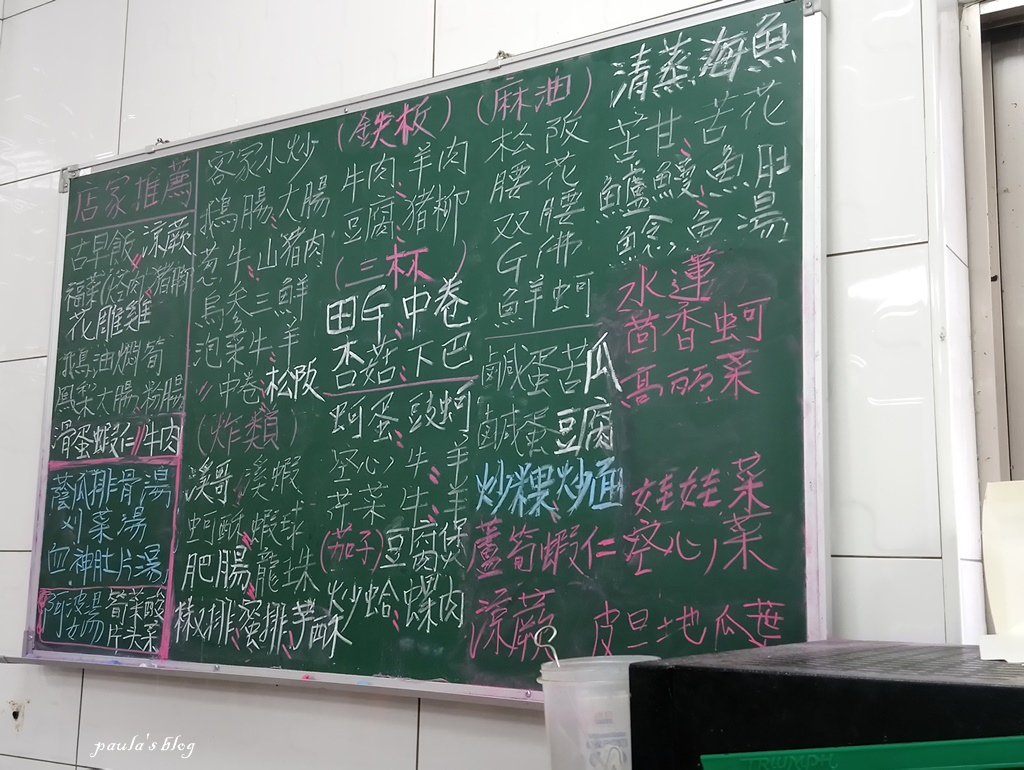 店家推薦
古早飯〃涼蕨
福菜(焢肉〃豬腳
花雕雞
鵝油燜筍
鳳梨大腸〃粉腸
滑蛋蝦仁〃牛肉
蔭瓜排骨湯
刈菜湯
血.神肚片湯
客家小炒
鵝腸〃大腸
蔥牛〃山豬肉
烏炎三鮮
泡菜牛〃羊
〃中卷〃松阪
(炸類)
溪哥〃溪蝦
蚵酥〃蝦球
肥腸〃龍珠
椒排〃蜜排〃芋酥
(鉄板)
牛肉〃羊肉
豆腐〃豬柳
(三杯)
田G〃中卷
杏菇〃下巴
蚵蛋〃豉蚵
空心〃牛〃羊
芹菜〃牛〃羊
(茄子)豆腐煲
炒蛤〃螺肉
(麻油)
松阪
腰花
双腰
G佛
鮮蚵
鹹蛋苦瓜
鹹蛋豆腐
炒粿炒面
蘆筍蝦仁
涼蕨
清蒸海魚
苦甘〃苦花
鱸鰻〃魚肚
魚湯
水蓮
茴香蚵
高丽菜
娃娃菜
空心菜
皮旦地瓜葉
paula's blog
TRIUMPH